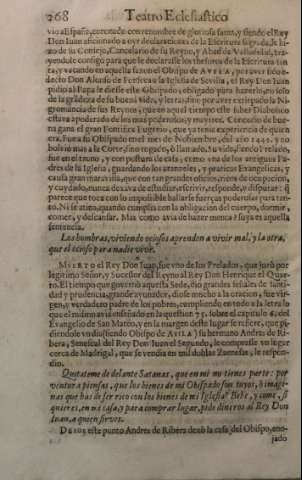 268 Teatro Eclesiastico
vio a España, coronado con renombre de gloriosa fama, y siendo el Rey
Don Iuan aficionado a oyr declaraciones de la Escritura Sagrada, le hi-
zo de su Consejo, Cancelario de su Reyno, y Abad de Valladolid, tra-
yendole consigo para que le declarasse los thesoros de la Escritura sin-
ta, y vacando en aquella sazon el Obispo de AVILA, por aver
decto Don Alonso de Fonseca la Iglesia de Sevilla, el Rey Don Iuan
pidio al Papa le diesse este Obispado, obligado para hazerlo, no solo
de la grandeza de su buena vida, y letras, sino por aver extirpado la Ni-
gromancia de sus Reynos, que en aquel tiempo este saber Diabolico
estava apoderado de los mas poderosos, y mayores. Concedio de bue-
na gana el gran Pontifice Eugenio, que ya tenia experiencia de quien
era. Fue a su Obispado en el mes de Noviembre, del año 1449. y no
bolvio mas a la Corte, sino rogado, ò llamado. Su vida, siendo Prelado,
fue en el trono, y con postura de casa, como vna de los antiguos Pa-
dres de la Iglesia, guardando los aranceles, y practicas Evangelicas, y
causa gran maravilla, que con tan grandes oficios, tratos de ocupacion,
y cuydado, nunca dexava de estudiar, escrivir, responder, ò disputar: q̃
parece que toca con lo impossible hallarse fuerças poderosas para tan-
to. Ni se sabe, quando cumplia con la obligacion del cuerpo, dormir,
comer, y descansar. Mas como avia de hazer menos? suya es aquella
sentencia.
Los hombres, viviendo ociosos aprenden a vivir mal, y la otra,
que el ocioso para nadie vive.
MVERTO el Rey Don Iuan, fue vno de los Prelados, que juró por
legitimo Señor, y Sucessor del Reyno al Rey Don Henrique el Quar-
to. El tiempo que governò aquesta Sede, dio grandes señales de santi-
dad y prudencia, grande ayunador, diose mucho a la oracion, fue vir-
gen, y verdadero padre de los pobres, cumpliendo en todo a la letra lo
que el mismo avia enseñado en la question 75. sobre el capitulo 6. del
Evangelio de San Marco, y en la margen desse lugar se refiere, que pi-
diendole vn dia siendo Obispo de AVILA su hermano Andres de Ri-
bera, Senescal del Rey Don Iuan el Segundo, le comprasse vn lugar
cerca de Madrigal, que se vendia en mil doblas Zamoras, le respon-
dio.
Quitateme de delante Satanas, que en mi no tienes parte: por
ventura piensas, que los bienes de mi Obispado son tuyos, ò imagi-
nas que has de ser rico con los bienes de mi Iglesia? Bebe, y come, si
quieres, en mi casa, y para comprar lugar, pide dineros al Rey Don
Iuan, a quien sirves.
DESDE este punto Andres de Ribera dexò la casa del Obispo, eno-
jado